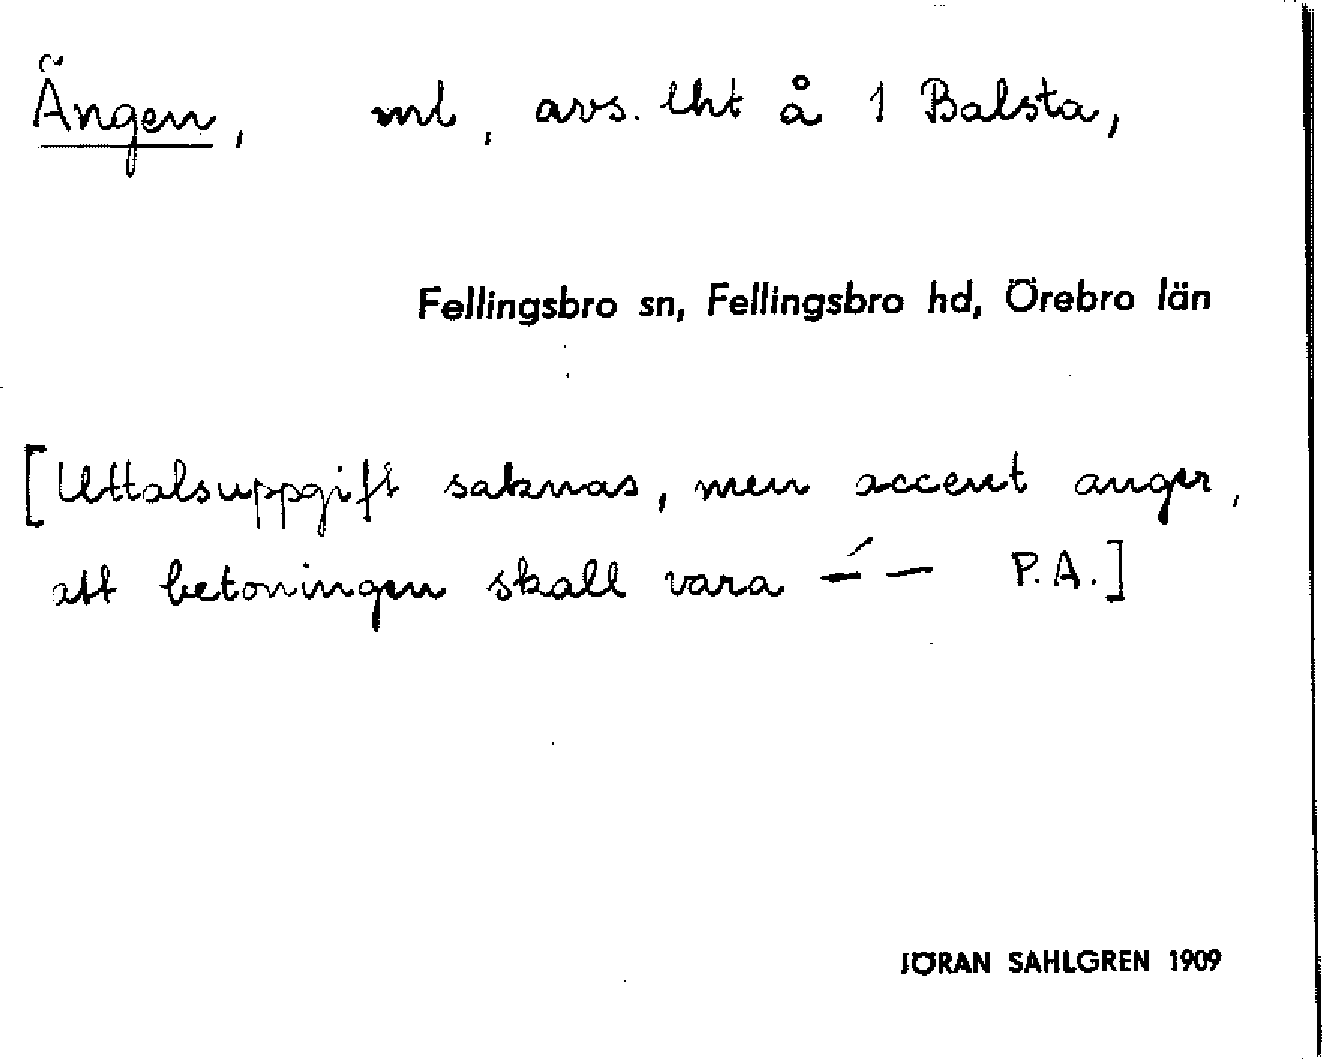 Ängen, ml, avs. lht å 1 Balsta,
Fellingsbro sn, Fellingsbro hd, Örebro län
[Uttalsuppgift saknas, men accent anger,
att betoningen skall vara –́ – P.A.]
JÖRAN SAHLGREN 1909